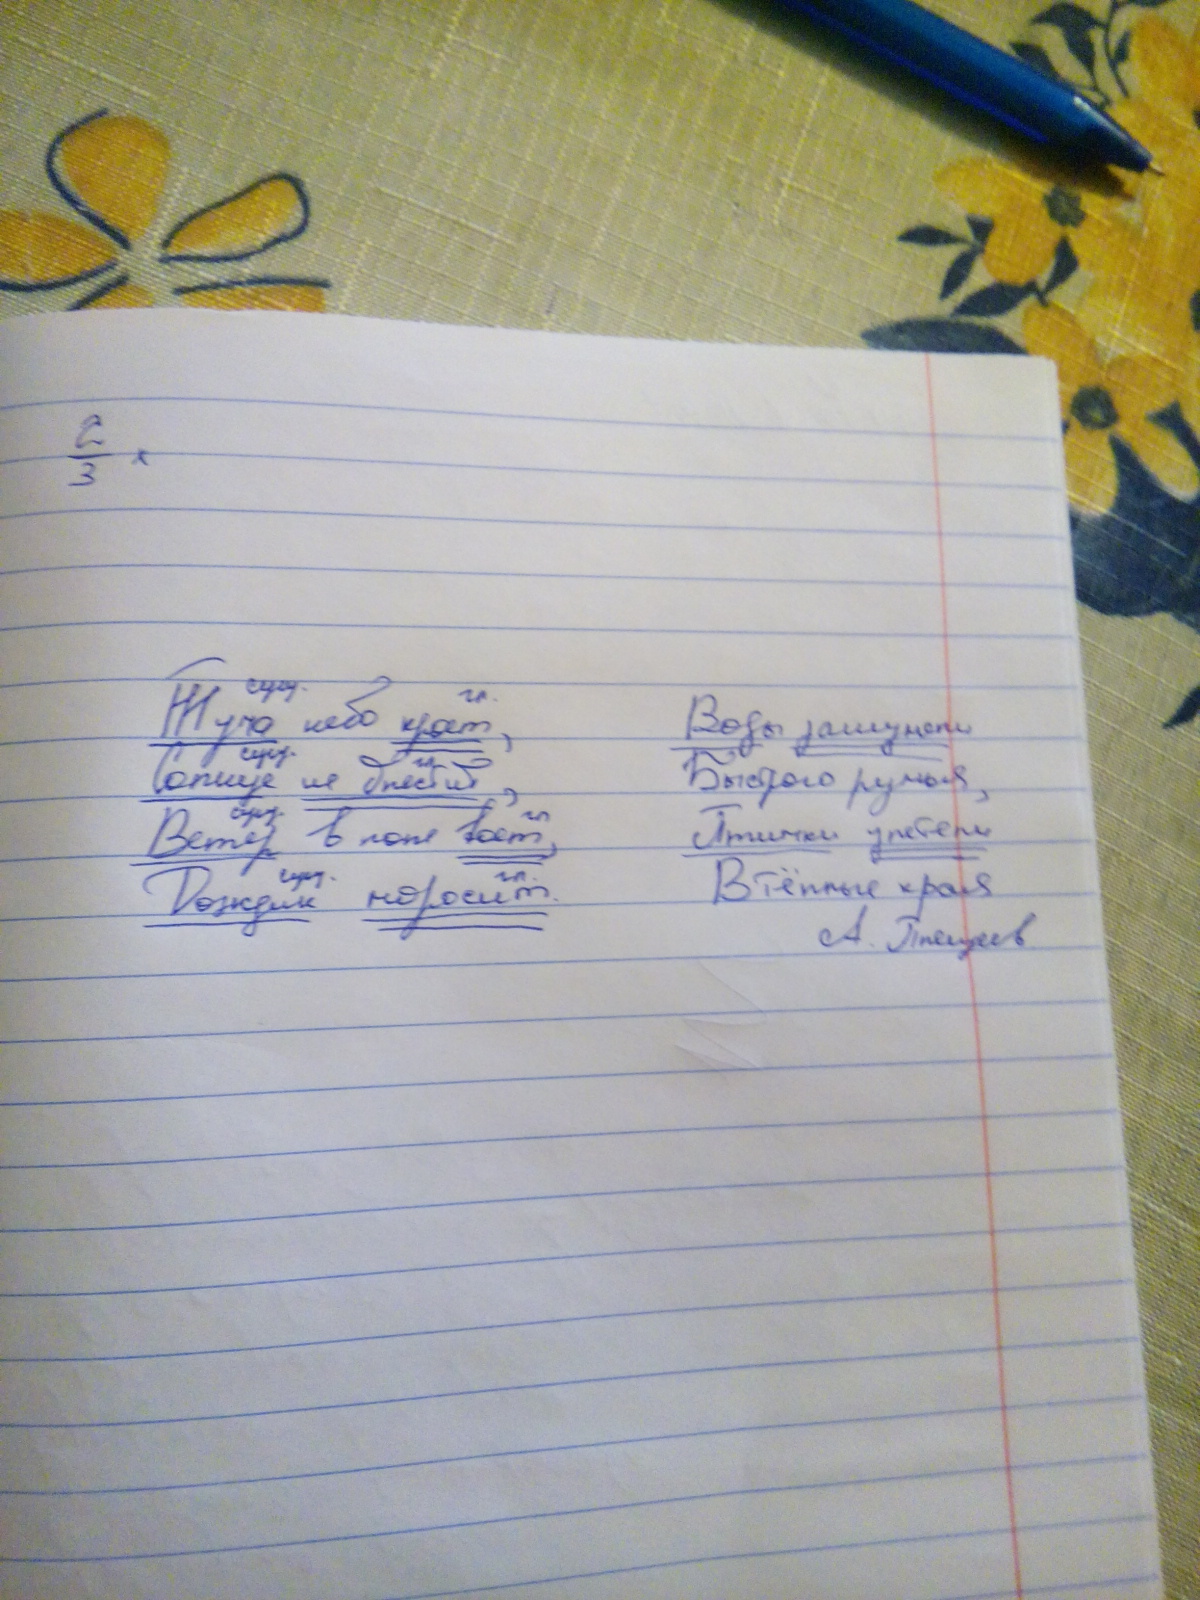 2/3 x
сущ. гл.
Туча небо кроет,
сущ. гл.
Солнце не блестит,
сущ. гл.
Ветер в поле воет,
сущ. гл.
Дождик моросит.
Воды зашумели
Быстрого ручья,
Птички улетели
В тёплые края
А. Плещеев